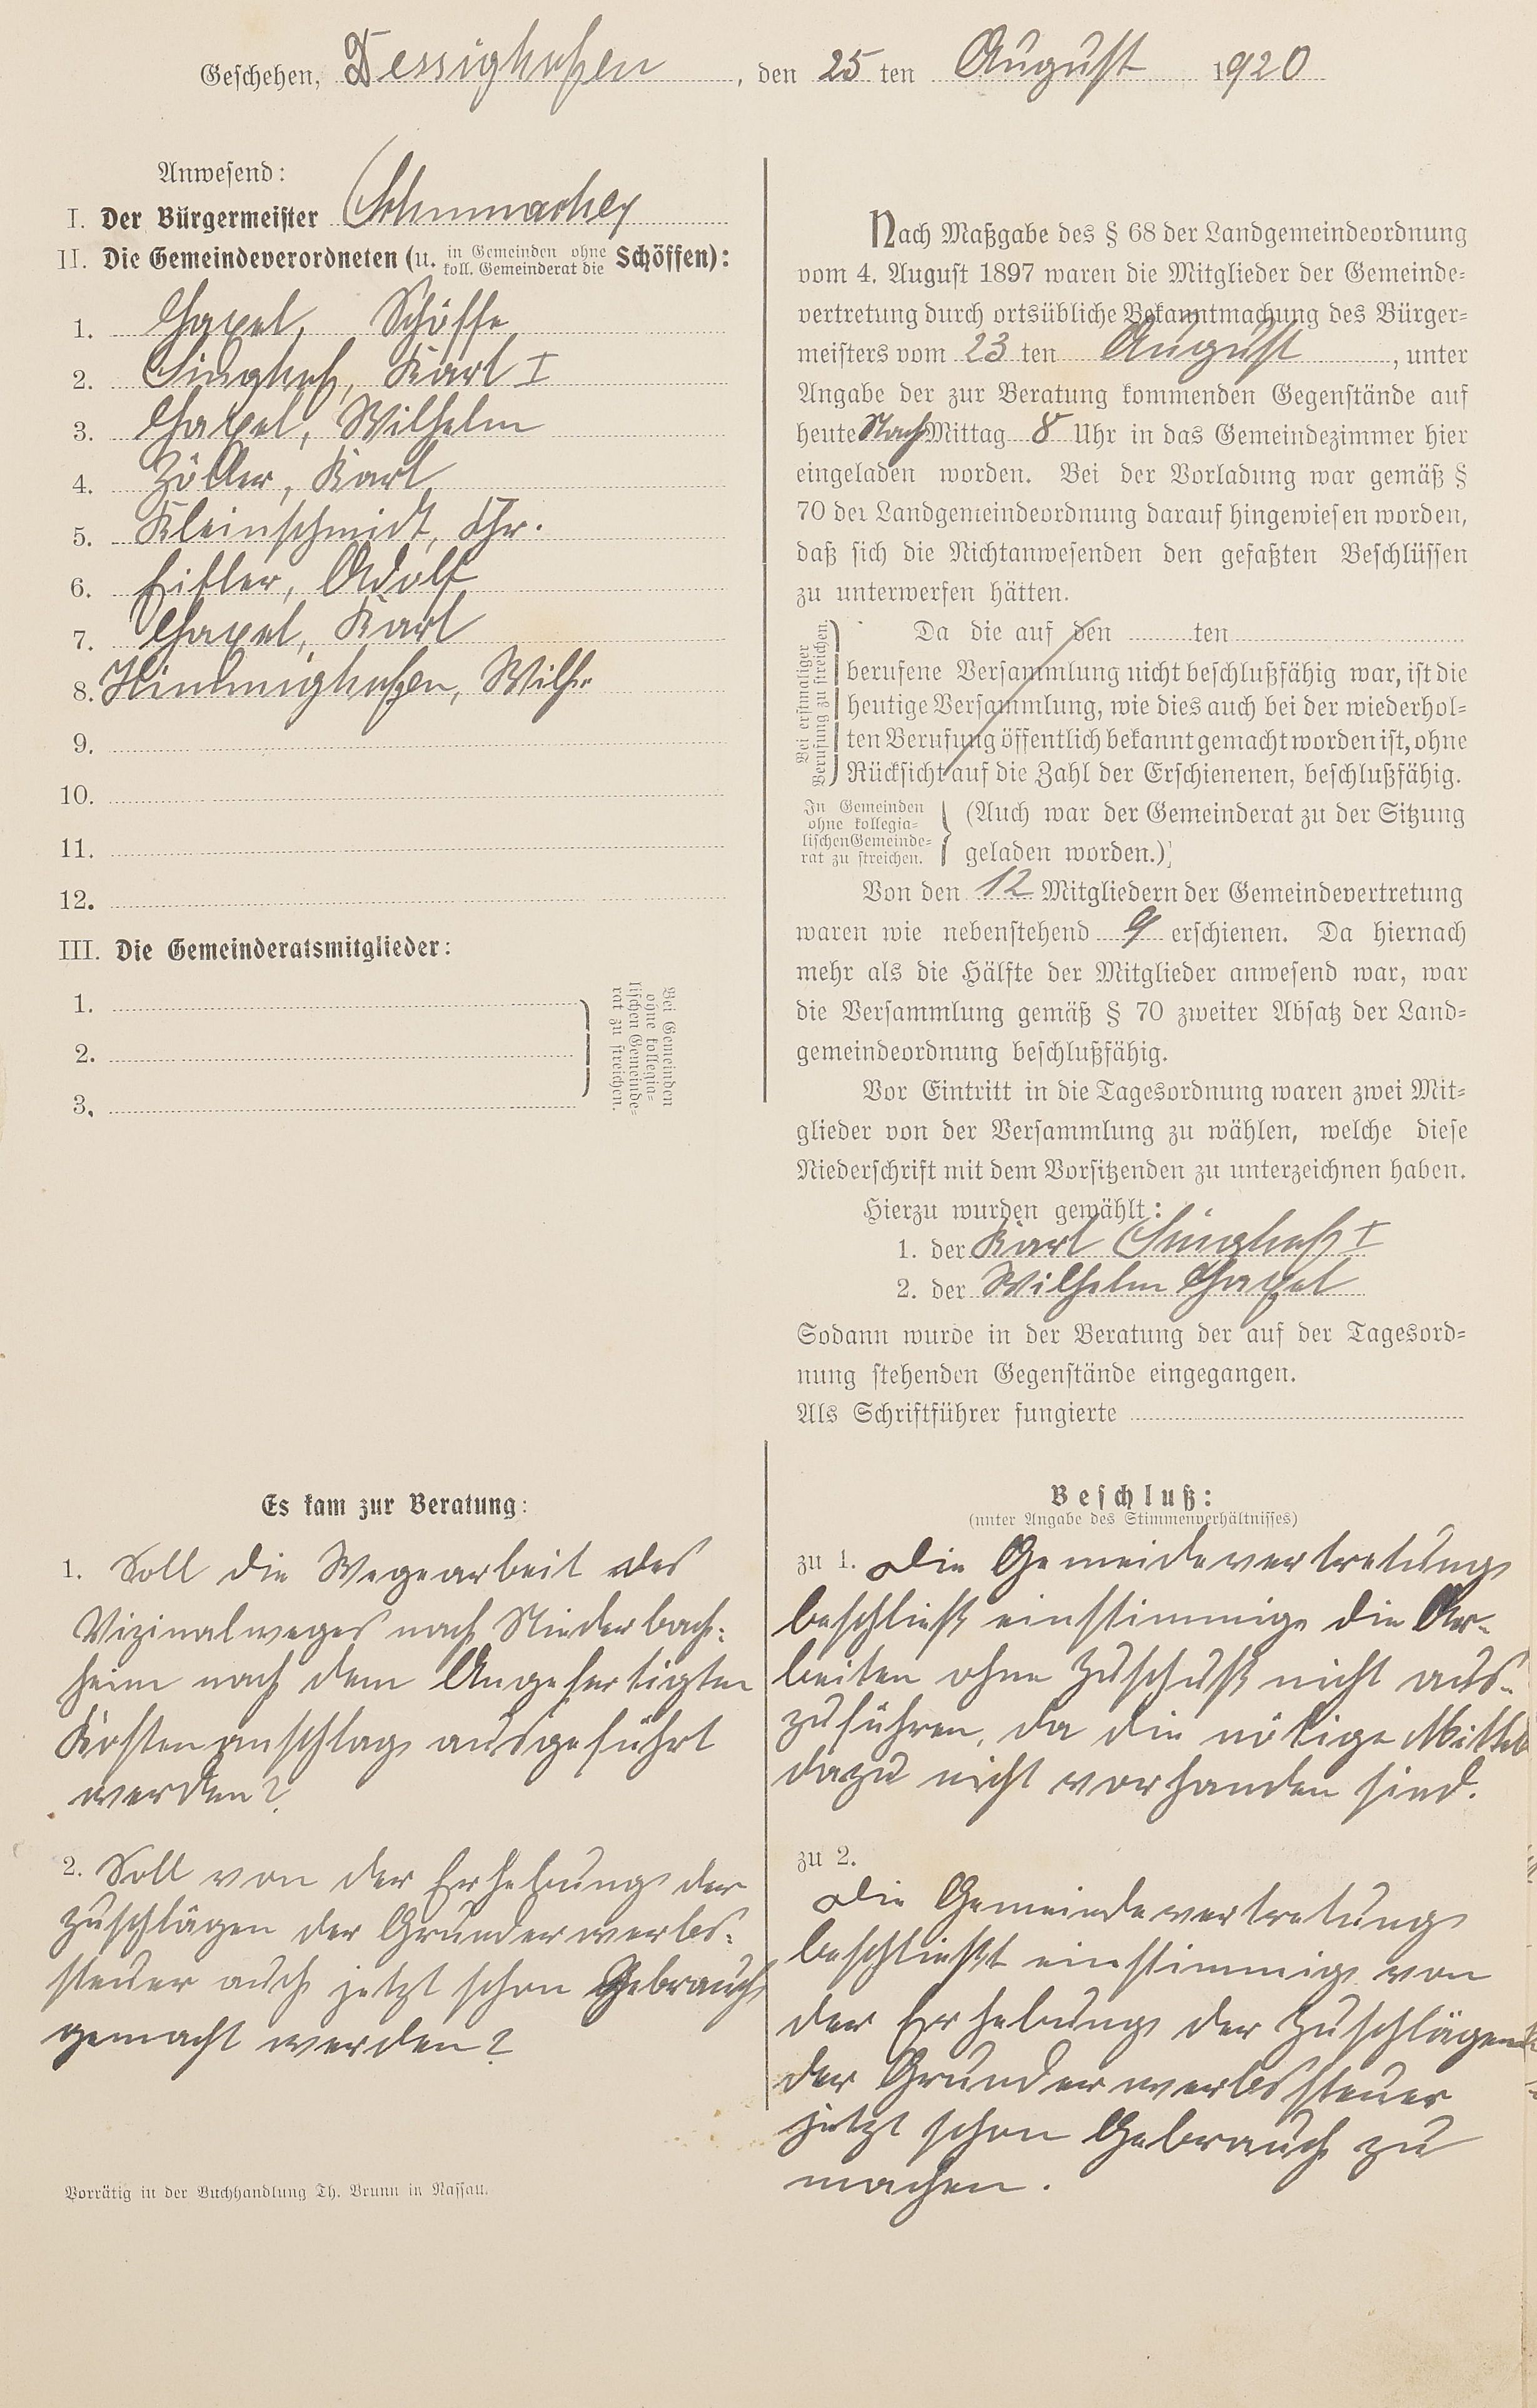 Geschehen, Dessighofen, den 25 ten August 1920
Anwesend:
I. Der Bürgermeister Schumacher
II. Die Gemeindeverordneten (u. in Gemeinden ohne koll. Gemeinderat die Schöffen):
1. Gapel, Schöffe
2. Singhof, Karl I
3. Gapel, Wilhelm
4. Zöller, Karl
5. Kleinschmidt, Chr.
6. Eisler, Adolf
7. Gapel, Karl
8. Himmighofen, Wilh.
9.
10.
11.
12.
III. Die Gemeinderatsmitglieder:
1.
2.
3.
Bei Gemeinden
ohne kollegia-
lischen Gemeinde-
rat zu streichen.
Nach Maßgabe des § 68 der Landgemeindeordnung
vom 4. August 1897 waren die Mitglieder der Gemeinde-
vertretung durch ortsübliche Bekanntmachung des Bürger-
meisters vom 23 ten August, unter
Angabe der zur Beratung kommenden Gegenstände auf
heute NachMittag 8 Uhr in das Gemeindezimmer hier
eingeladen worden. Bei der Vorladung war gemäß §
70 der Landgemeindeordnung darauf hingewiesen worden,
daß sich die Nichtanwesenden den gefaßten Beschlüssen
zu unterwerfen hätten.
Bei erstmaliger
Berufung zu streichen.
Da die auf den ten
berufene Versammlung nicht beschlußfähig war, ist die
heutige Versammlung, wie dies auch bei der wiederhol-
ten Berufung öffentlich bekannt gemacht worden ist, ohne
Rücksicht auf die Zahl der Erschienenen, beschlußfähig.
In Gemeinden
ohne kollegia-
lischen Gemeinde-
rat zu streichen.
(Auch war der Gemeinderat zu der Sitzung
geladen worden.)
Von den 12 Mitgliedern der Gemeindevertretung
waren wie nebenstehend 9 erschienen. Da hiernach
mehr als die Hälfte der Mitglieder anwesend war, war
die Versammlung gemäß § 70 zweiter Absatz der Land-
gemeindeordnung beschlußfähig.
Vor Eintritt in die Tagesordnung waren zwei Mit-
glieder von der Versammlung zu wählen, welche diese
Niederschrift mit dem Vorsitzenden zu unterzeichnen haben.
Hierzu wurden gewählt:
1. der Karl Singhof I
2. der Wilhelm Gapel
Sodann wurde in der Beratung der auf der Tagesord-
nung stehenden Gegenstände eingegangen.
Als Schriftführer fungierte
Es kam zur Beratung:
1. Soll die Wegearbeit des
Vizinalweges nach Niederbach-
heim nach dem Angefertigten
Kostenanschlag ausgeführt
werden?
2. Soll von der Erhebung der
Zuschlägen der Grunderwerbs-
steuer auch jetzt schon Gebrauch
gemacht werden?
Vorrätig in der Buchhandlung Th. Brunn in Nassau.
Beschluß:
(unter Angabe des Stimmenverhältnisses)
zu 1. Die Gemeidevertretung
beschließt einstimmig die Ar-
beiten ohne Zuschuß nicht aus-
zuführen, da die nötige Mittel
dazu nicht vorhanden sind.
zu 2.
Die Gemeindevertretung
beschließt einstimmig von
der Erhebung der Zuschlägen
der Grunderwerbssteuer
jetzt schon Gebrauch zu
machen.